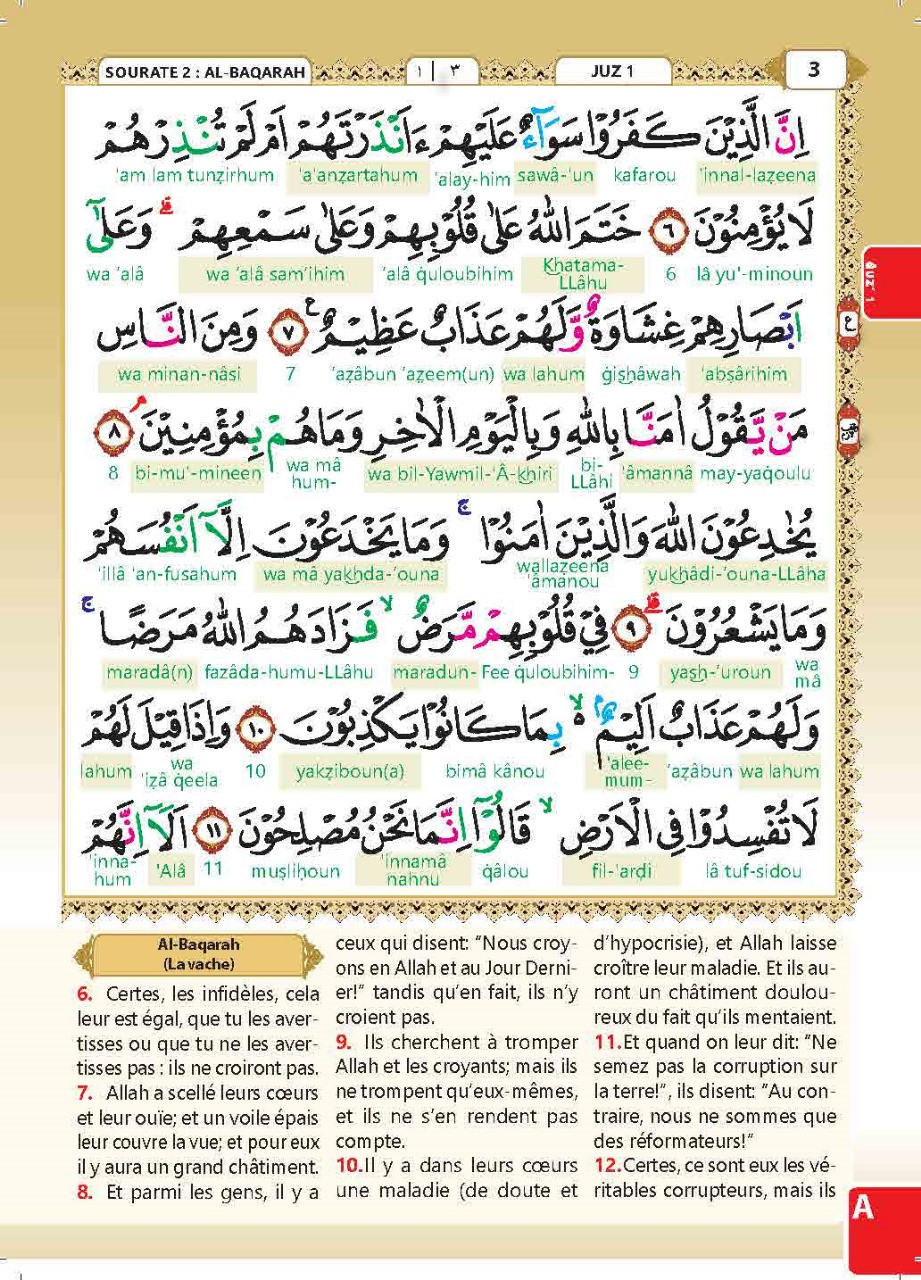 SOURATE 2 : AL-BAQARAH
١ | ٣
JUZ 1
3
اِنَّ الَّذِيْنَ كَفَرُوْا سَوَآءٌ عَلَيْهِمْ ءَاَنْذَرْتَهُمْ اَمْ لَمْ تُنْذِرْهُمْ
'innal-lazeena kafarou sawâ-'un 'alay-him 'a'anzartahum 'am lam tunzirhum
لَا يُؤْمِنُوْنَ ٦ خَتَمَ اللهُ عَلٰى قُلُوْبِهِمْ وَعَلٰى سَمْعِهِمْ وَعَلٰٓى
lâ yu'-minoun 6 Khatama-LLâhu 'alâ quloubihim wa 'alâ sam'ihim wa 'alâ
اَبْصَارِهِمْ غِشَاوَةٌ وَّلَهُمْ عَذَابٌ عَظِيْمٌ ٧ وَمِنَ النَّاسِ
'absârihim gishâwah wa lahum 'azâbun 'azeem(un) 7 wa minan-nâsi
مَنْ يَّقُوْلُ اٰمَنَّا بِاللهِ وَبِالْيَوْمِ الْاٰخِرِ وَمَا هُمْ بِمُؤْمِنِيْنَ ٨
may-yaqoulu 'âmannâ bi-LLâhi wa bil-Yawmil-'Â-khiri wa mâ hum- bi-mu'-mineen 8
يُخٰدِعُوْنَ اللهَ وَالَّذِيْنَ اٰمَنُوْا ۚ وَمَا يَخْدَعُوْنَ اِلَّآ اَنْفُسَهُمْ
yukhâdi-'ouna-LLâha wallazeena 'âmanou wa mâ yakhda-'ouna 'illâ 'an-fusahum
وَمَا يَشْعُرُوْنَ ٩ فِيْ قُلُوْبِهِمْ مَّرَضٌ ۙ فَزَادَهُمُ اللهُ مَرَضًا ۚ
wa mâ yash-'uroun 9 Fee quloubihim- maradun- fazâda-humu-LLâhu maradâ(n)
وَلَهُمْ عَذَابٌ اَلِيْمٌ ۙ بِمَا كَانُوْا يَكْذِبُوْنَ ١٠ وَاِذَا قِيْلَ لَهُمْ
wa lahum 'azâbun 'alee-mum- bimâ kânou yakziboun(a) 10 wa 'izâ qeela lahum
لَا تُفْسِدُوْا فِى الْاَرْضِ ۙ قَالُوْٓا اِنَّمَا نَحْنُ مُصْلِحُوْنَ ١١ اَلَآ اِنَّهُمْ
lâ tuf-sidou fil-'ardi qâlou 'innamâ nahnu muslihoun 11 'Alâ 'inna-hum
Al-Baqarah
(La vache)
6. Certes, les infidèles, cela
leur est égal, que tu les aver-
tisses ou que tu ne les aver-
tisses pas : ils ne croiront pas.
7. Allah a scellé leurs cœurs
et leur ouïe; et un voile épais
leur couvre la vue; et pour eux
il y aura un grand châtiment.
8. Et parmi les gens, il y a
ceux qui disent: "Nous croy-
ons en Allah et au Jour Derni-
er!" tandis qu'en fait, ils n'y
croient pas.
9. Ils cherchent à tromper
Allah et les croyants; mais ils
ne trompent qu'eux-mêmes,
et ils ne s'en rendent pas
compte.
10.Il y a dans leurs cœurs
une maladie (de doute et
d'hypocrisie), et Allah laisse
croître leur maladie. Et ils au-
ront un châtiment doulou-
reux du fait qu'ils mentaient.
11.Et quand on leur dit: "Ne
semez pas la corruption sur
la terre!", ils disent: "Au con-
traire, nous ne sommes que
des réformateurs!"
12.Certes, ce sont eux les vé-
ritables corrupteurs, mais ils
JUZ' 1
ع
A